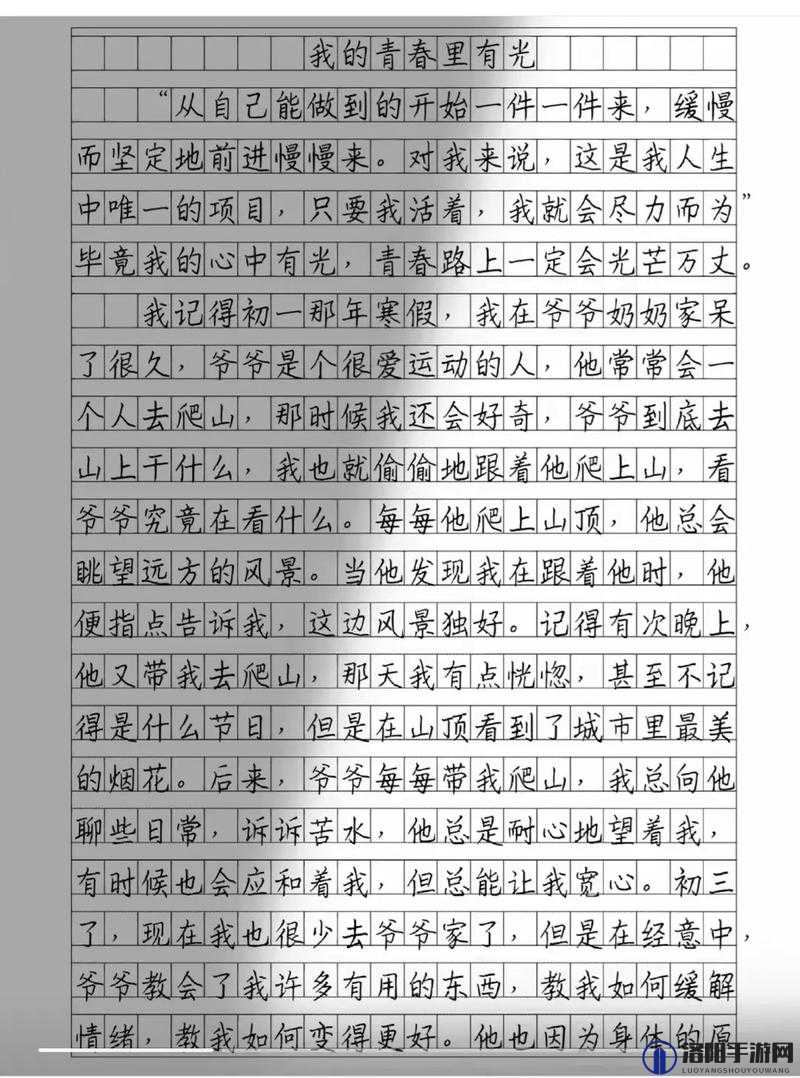 我的青春里有光
“从自己能做到的开始一件一件来，缓慢
而坚定地前进慢慢来。对我来说，这是我人生
中唯一的项目，只要我活着，我就会尽力而为”
毕竟我的心中有光，青春路上一定会光芒万丈。
我记得初一那年寒假，我在爷爷奶奶家呆
了很久，爷爷是个很爱运动的人，他常常会一
个人去爬山，那时候我还会好奇，爷爷到底去
山上干什么，我也就偷偷地跟着他爬上山，看
爷爷究竟在看什么。每每他爬上山顶，他总会
眺望远方的风景。当他发现我在跟着他时，他
便指点告诉我，这边风景独好。记得有次晚上，
他又带我去爬山，那天我有点恍惚，甚至不记
得是什么节日，但是在山顶看到了城市里最美
的烟花。后来，爷爷每每带我爬山，我总向他
聊些日常，诉诉苦水，他总是耐心地望着我，
有时候也会应和着我，但总能让我宽心。初三
了，现在我也很少去爷爷家了，但是在经意中，
爷爷教会了我许多有用的东西，教我如何缓解
情绪，教我如何变得更好。他也因为身体的原
洛阳手游网
LUOYANGSHOUYOUWANG